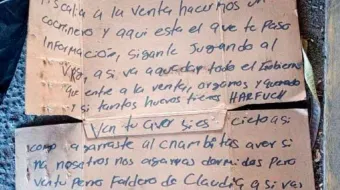 iscalia a la venta hacermos un
cocrinero y aqui esta el que te paso
informacion, sigante Jugando al
VRga, asi va aquedar todo el Gobierno
ente a la venta, organos y
y si tantos huevos tienes HARFUCH
Ven tu aver si es cieto asi
como agarraste al chambitas aver si
na nosotros nos agarras dormidos Pero
ven tu perro Faldero de Claudia a si vas